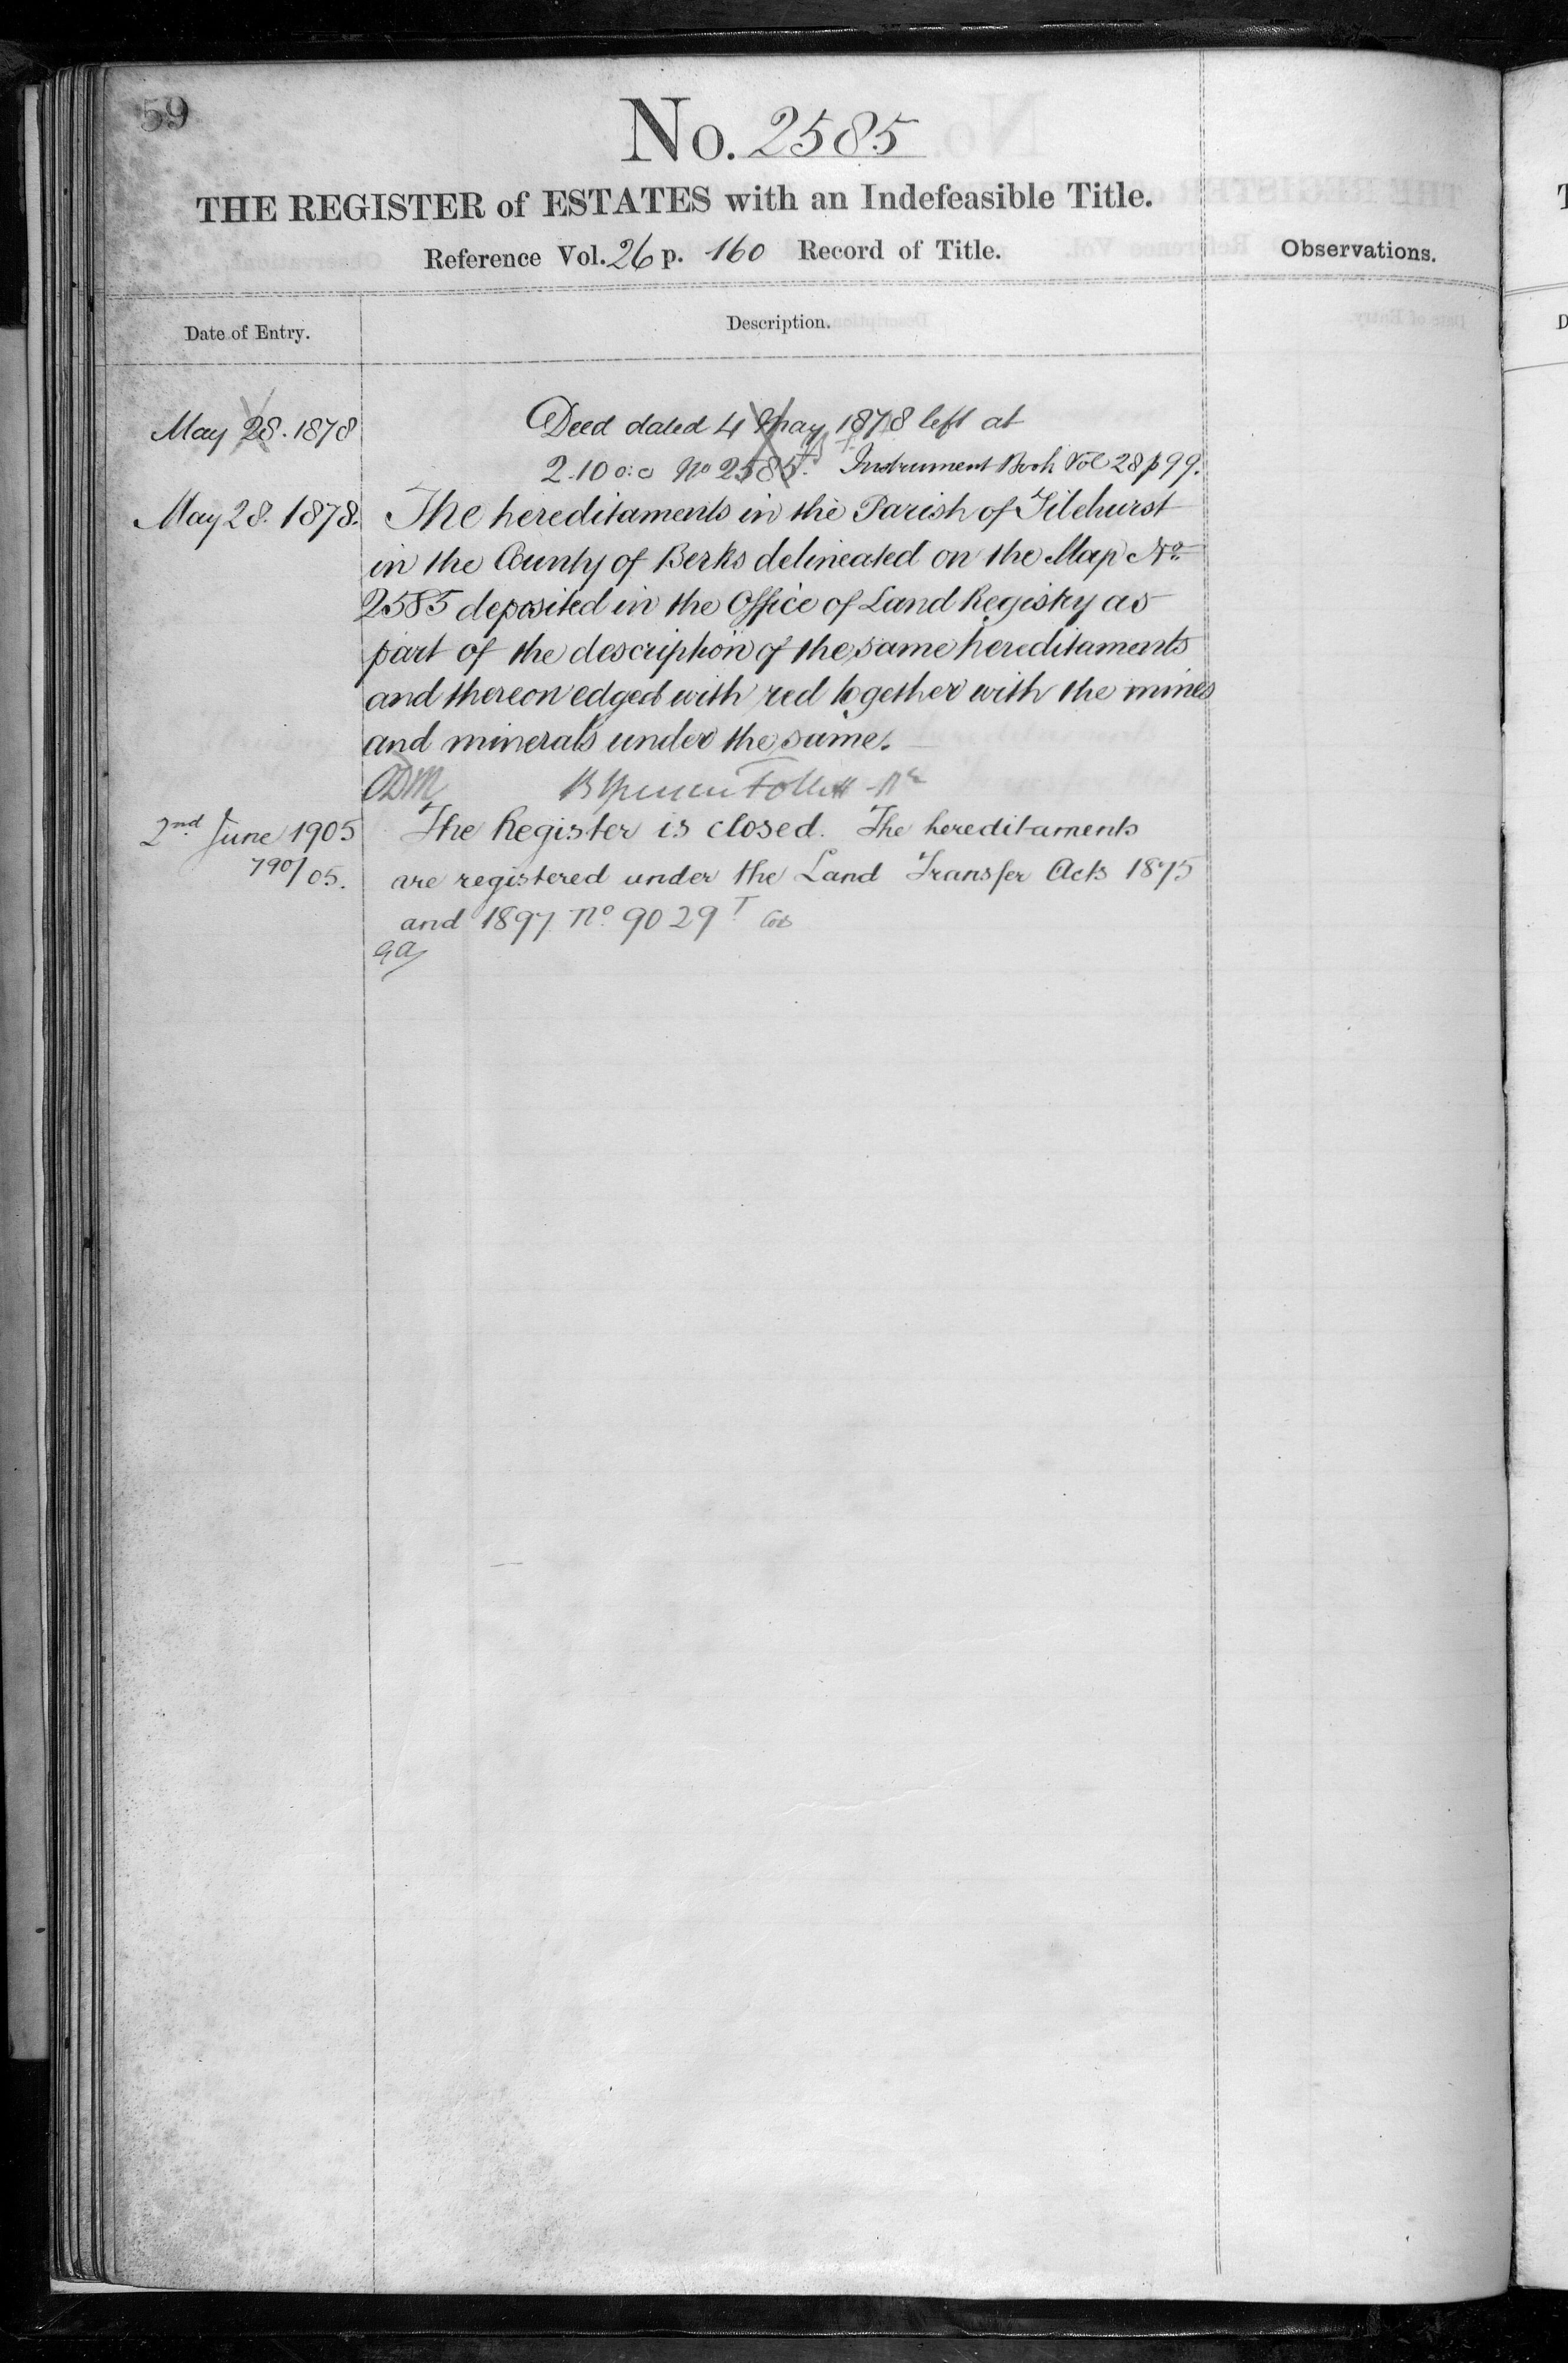 59
No. 2585
THE REGISTER of ESTATES with an Indefeasible Title.
Reference Vol. 26 p. 160 Record of Title.
Observations.
Date of Entry.
Description.
May 28. 1878
Deed dated 4 May 1878 left at
2.10 o:c No 2585. Instrument Book Vol 28 p 99.
May 28. 1878.
The hereditaments in the Parish of Tilehurst
in the County of Berks delineated on the Map No
2585 deposited in the Office of Land Registry as
part of the description of the same hereditaments
and thereon edged with red together with the mines
and minerals under the same.
Follett
2nd June 1905
790/05.
The Register is closed. The hereditaments
are registered under the Land Transfer Acts 1875
and 1897 No. 9029